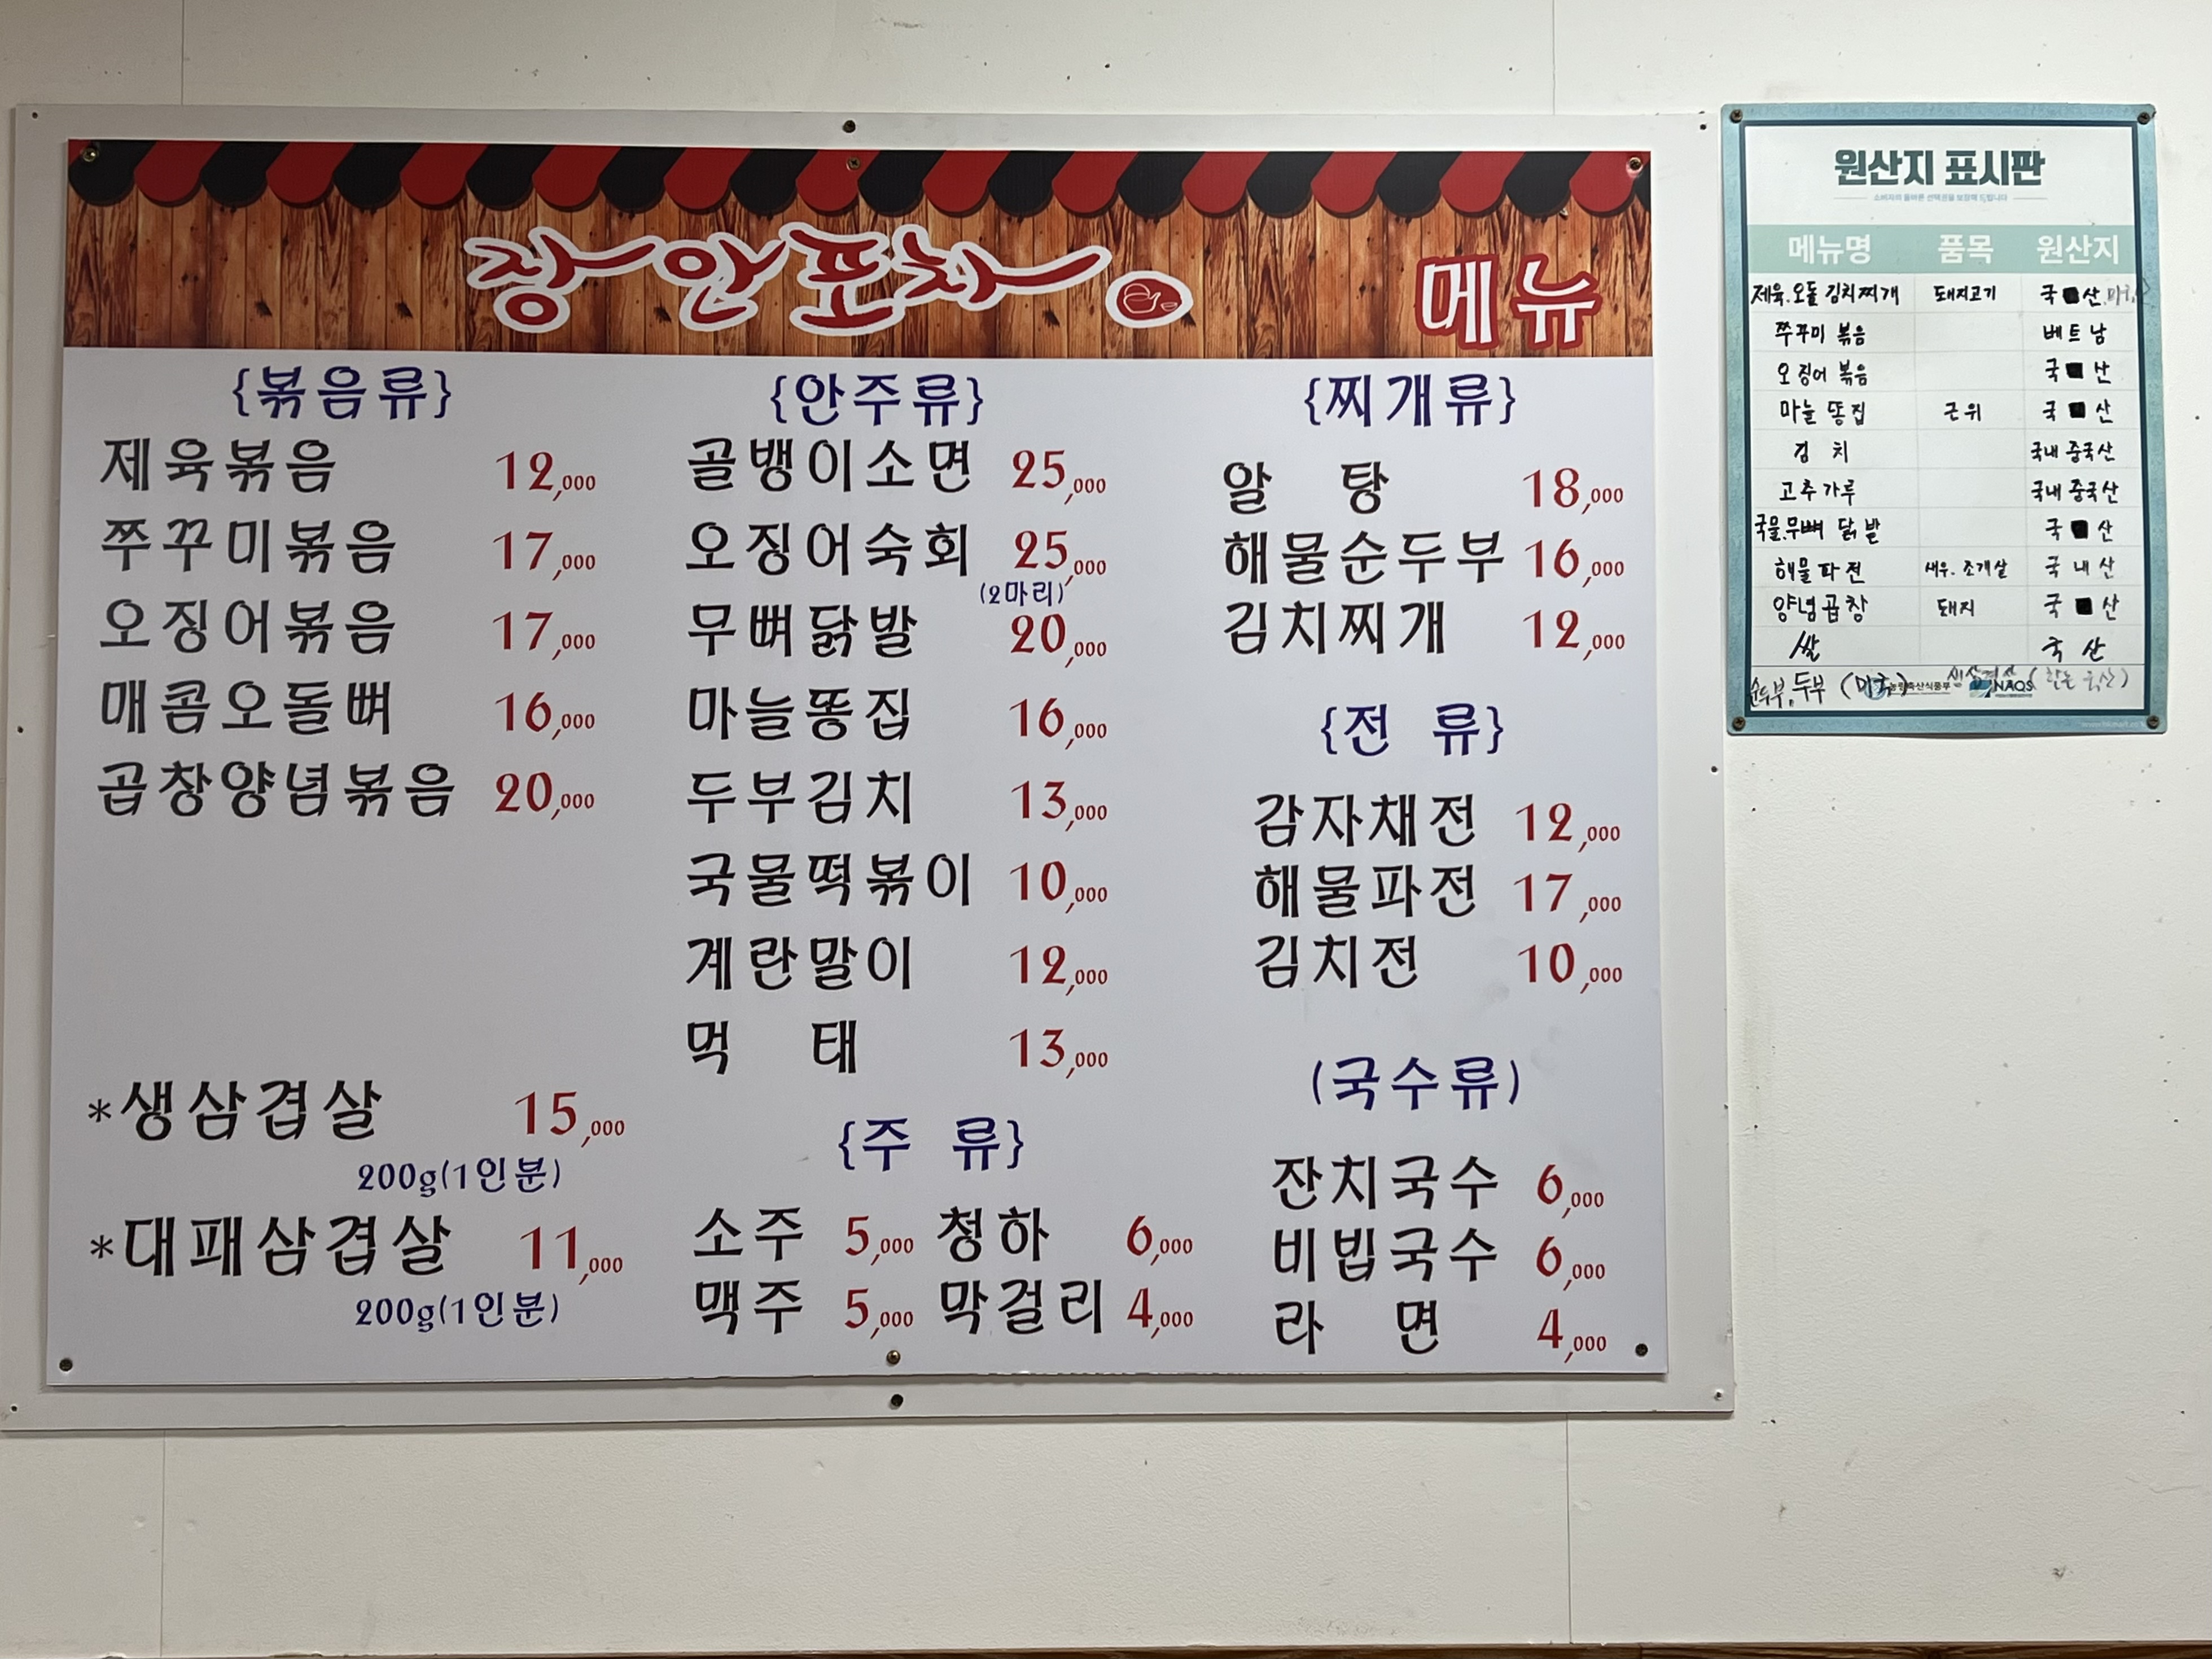 장안포차
메뉴
{볶음류}
제육볶음 12,000
쭈꾸미볶음 17,000
오징어볶음 17,000
매콤오돌뼈 16,000
곱창양념볶음 20,000
*생삼겹살 15,000
200g(1인분)
*대패삼겹살 11,000
200g(1인분)
{안주류}
골뱅이소면 25,000
오징어숙회 25,000
(2마리)
무뼈닭발 20,000
마늘똥집 16,000
두부김치 13,000
국물떡볶이 10,000
계란말이 12,000
먹 태 13,000
{주 류}
소주 5,000 청하 6,000
맥주 5,000 막걸리 4,000
{찌개류}
알 탕 18,000
해물순두부 16,000
김치찌개 12,000
{전 류}
감자채전 12,000
해물파전 17,000
김치전 10,000
(국수류)
잔치국수 6,000
비빔국수 6,000
라 면 4,000
원산지 표시판
소비자의 올바른 선택권을 보장해 드립니다
메뉴명 품목 원산지
제육.오돌 김치찌개 돼지고기 국 산
쭈꾸미 볶음 베트남
오징어 볶음 국 산
마늘 똥집 근위 국 산
김 치 국내 중국산
고추가루 국내 중국산
국물.무뼈 닭발 국 산
해물파전 새우. 조개살 국내산
양념곱창 돼지 국 산
쌀 국 산
순두부, 두부
농림축산식품부 NAQS